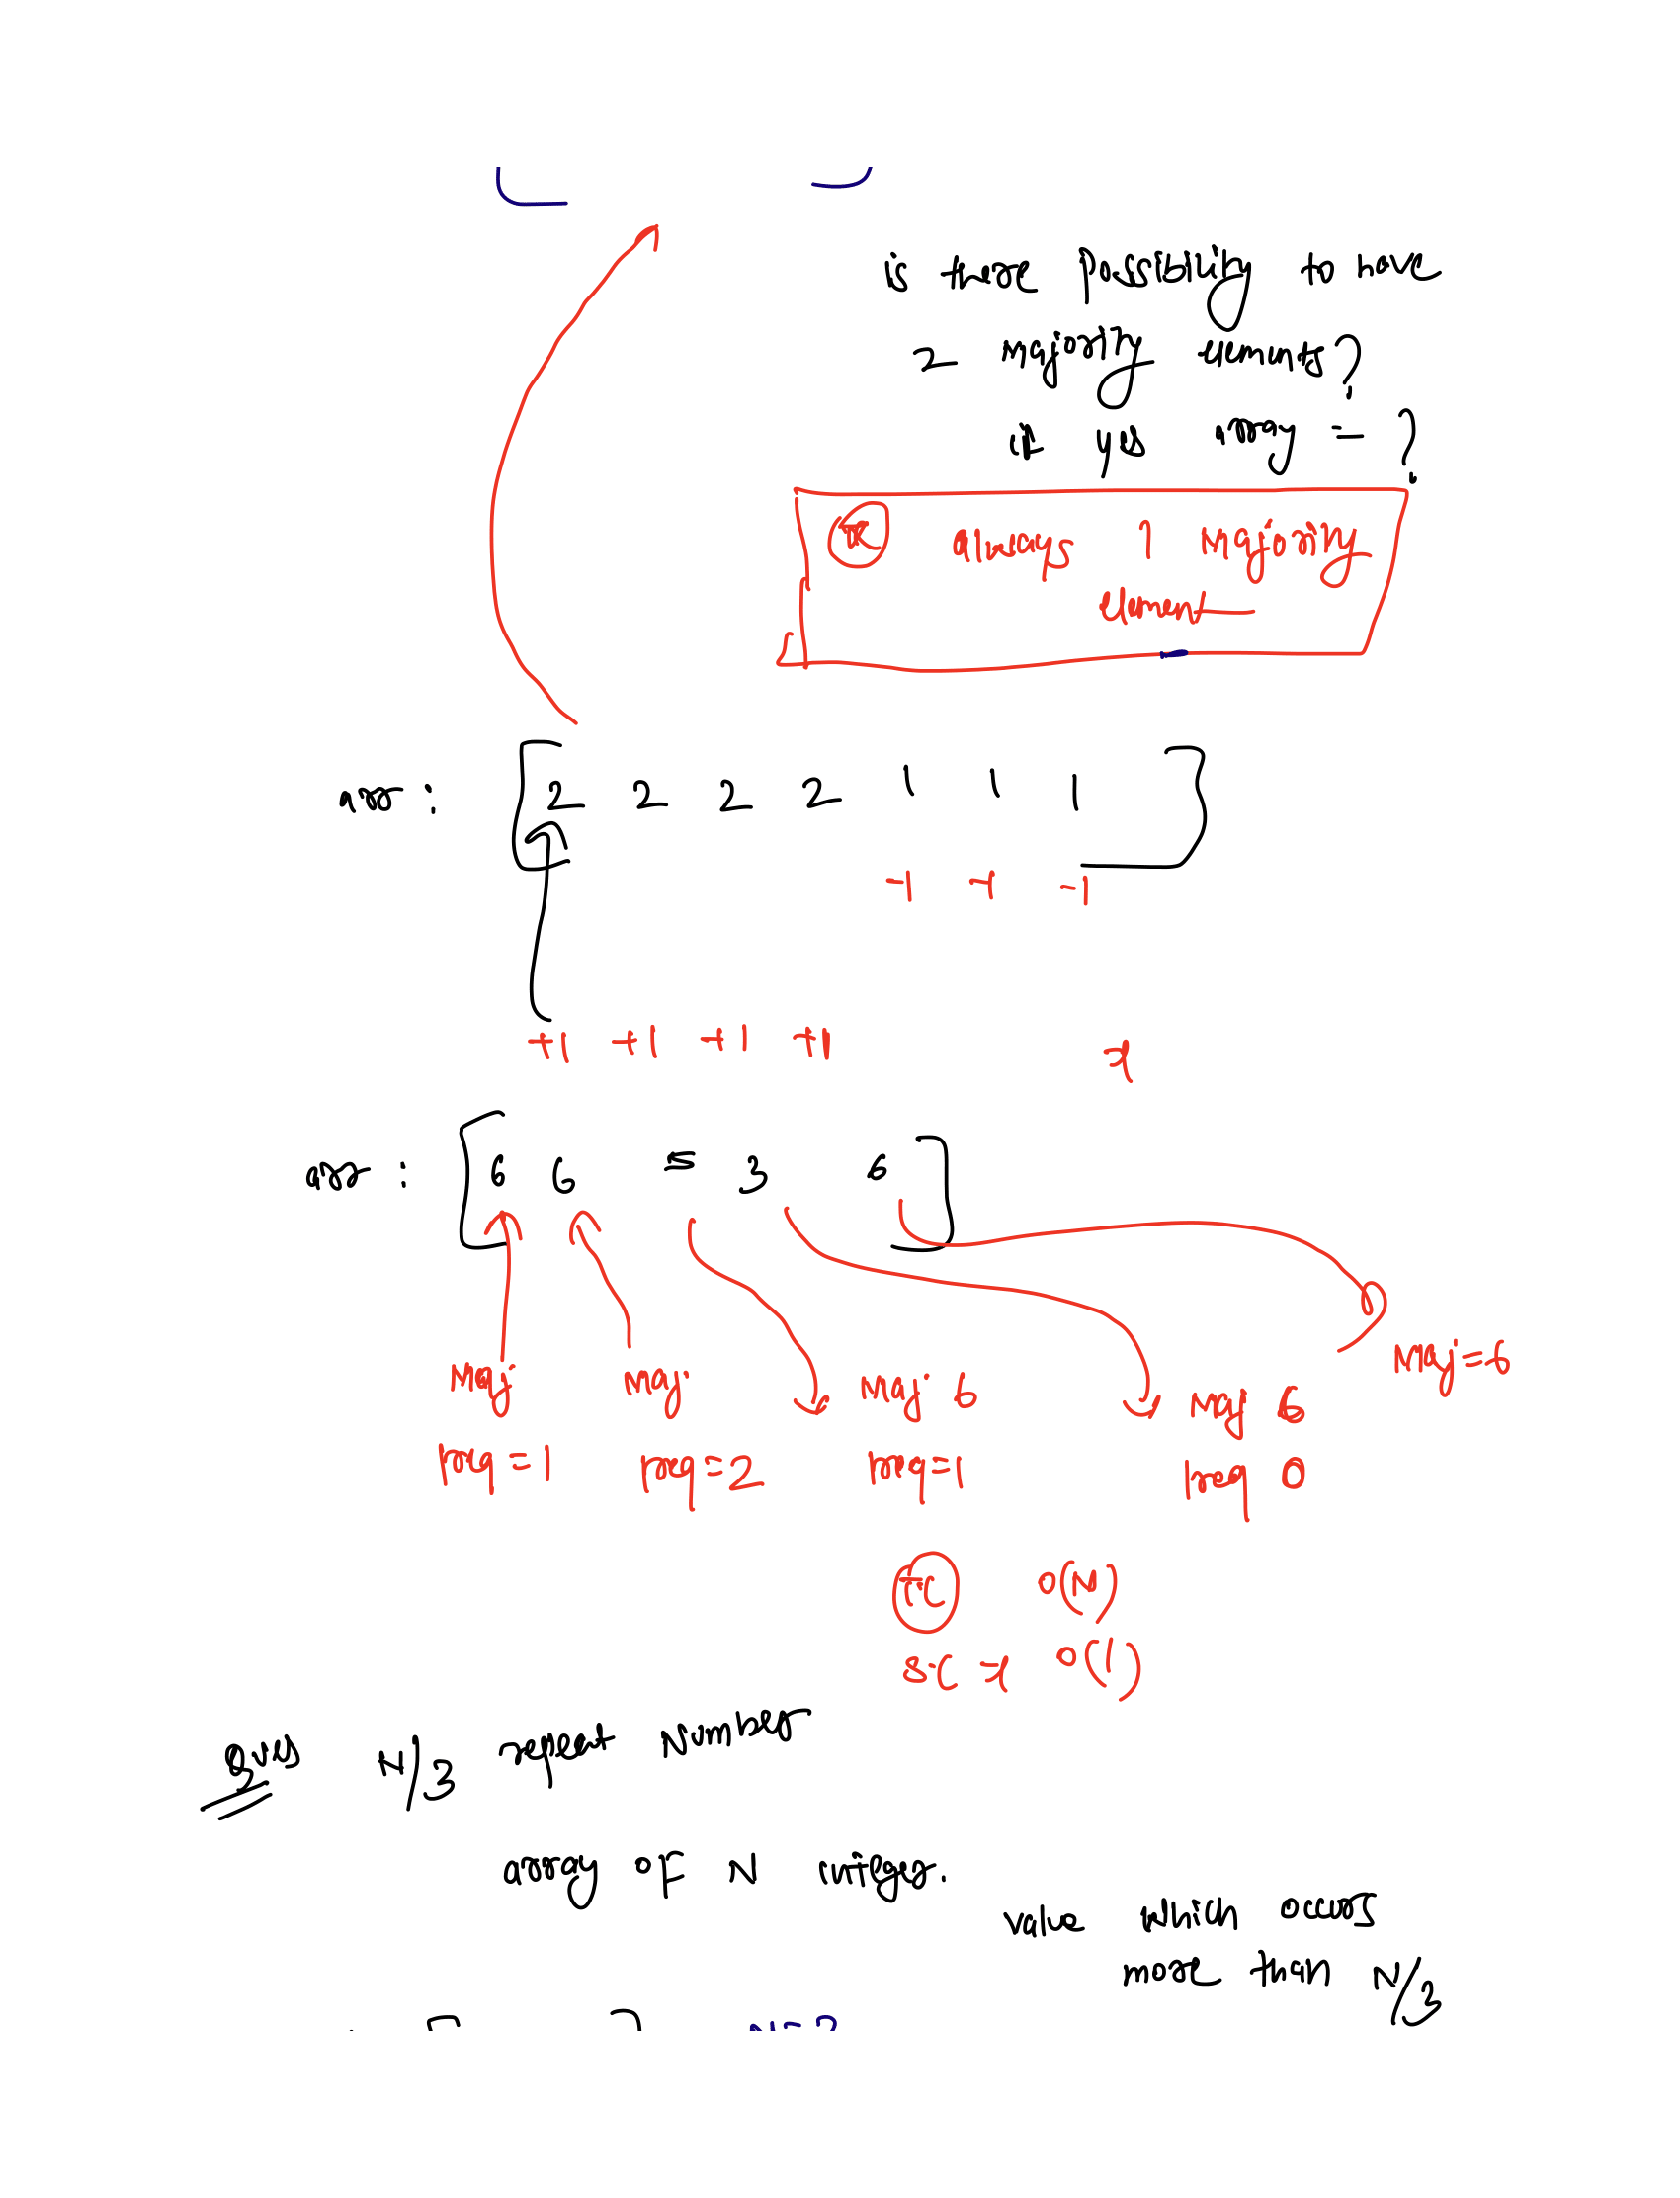 is there possibility to have
2 majority elements?
if yes array = ?
always 1 majority
element
arr : [ 2 2 2 2 1 1 1 ]
-1 -1 -1
+1 +1 +1 +1
arr : [ 6 6 5 3 6 ]
Maj Maj Maj 6 Maj 6 Maj=6
freq=1 freq=2 freq=1 freq 0
TC O(N)
SC O(1)
Ques N/3 repeat Number
array of N integer.
value which occurs
more than N/3